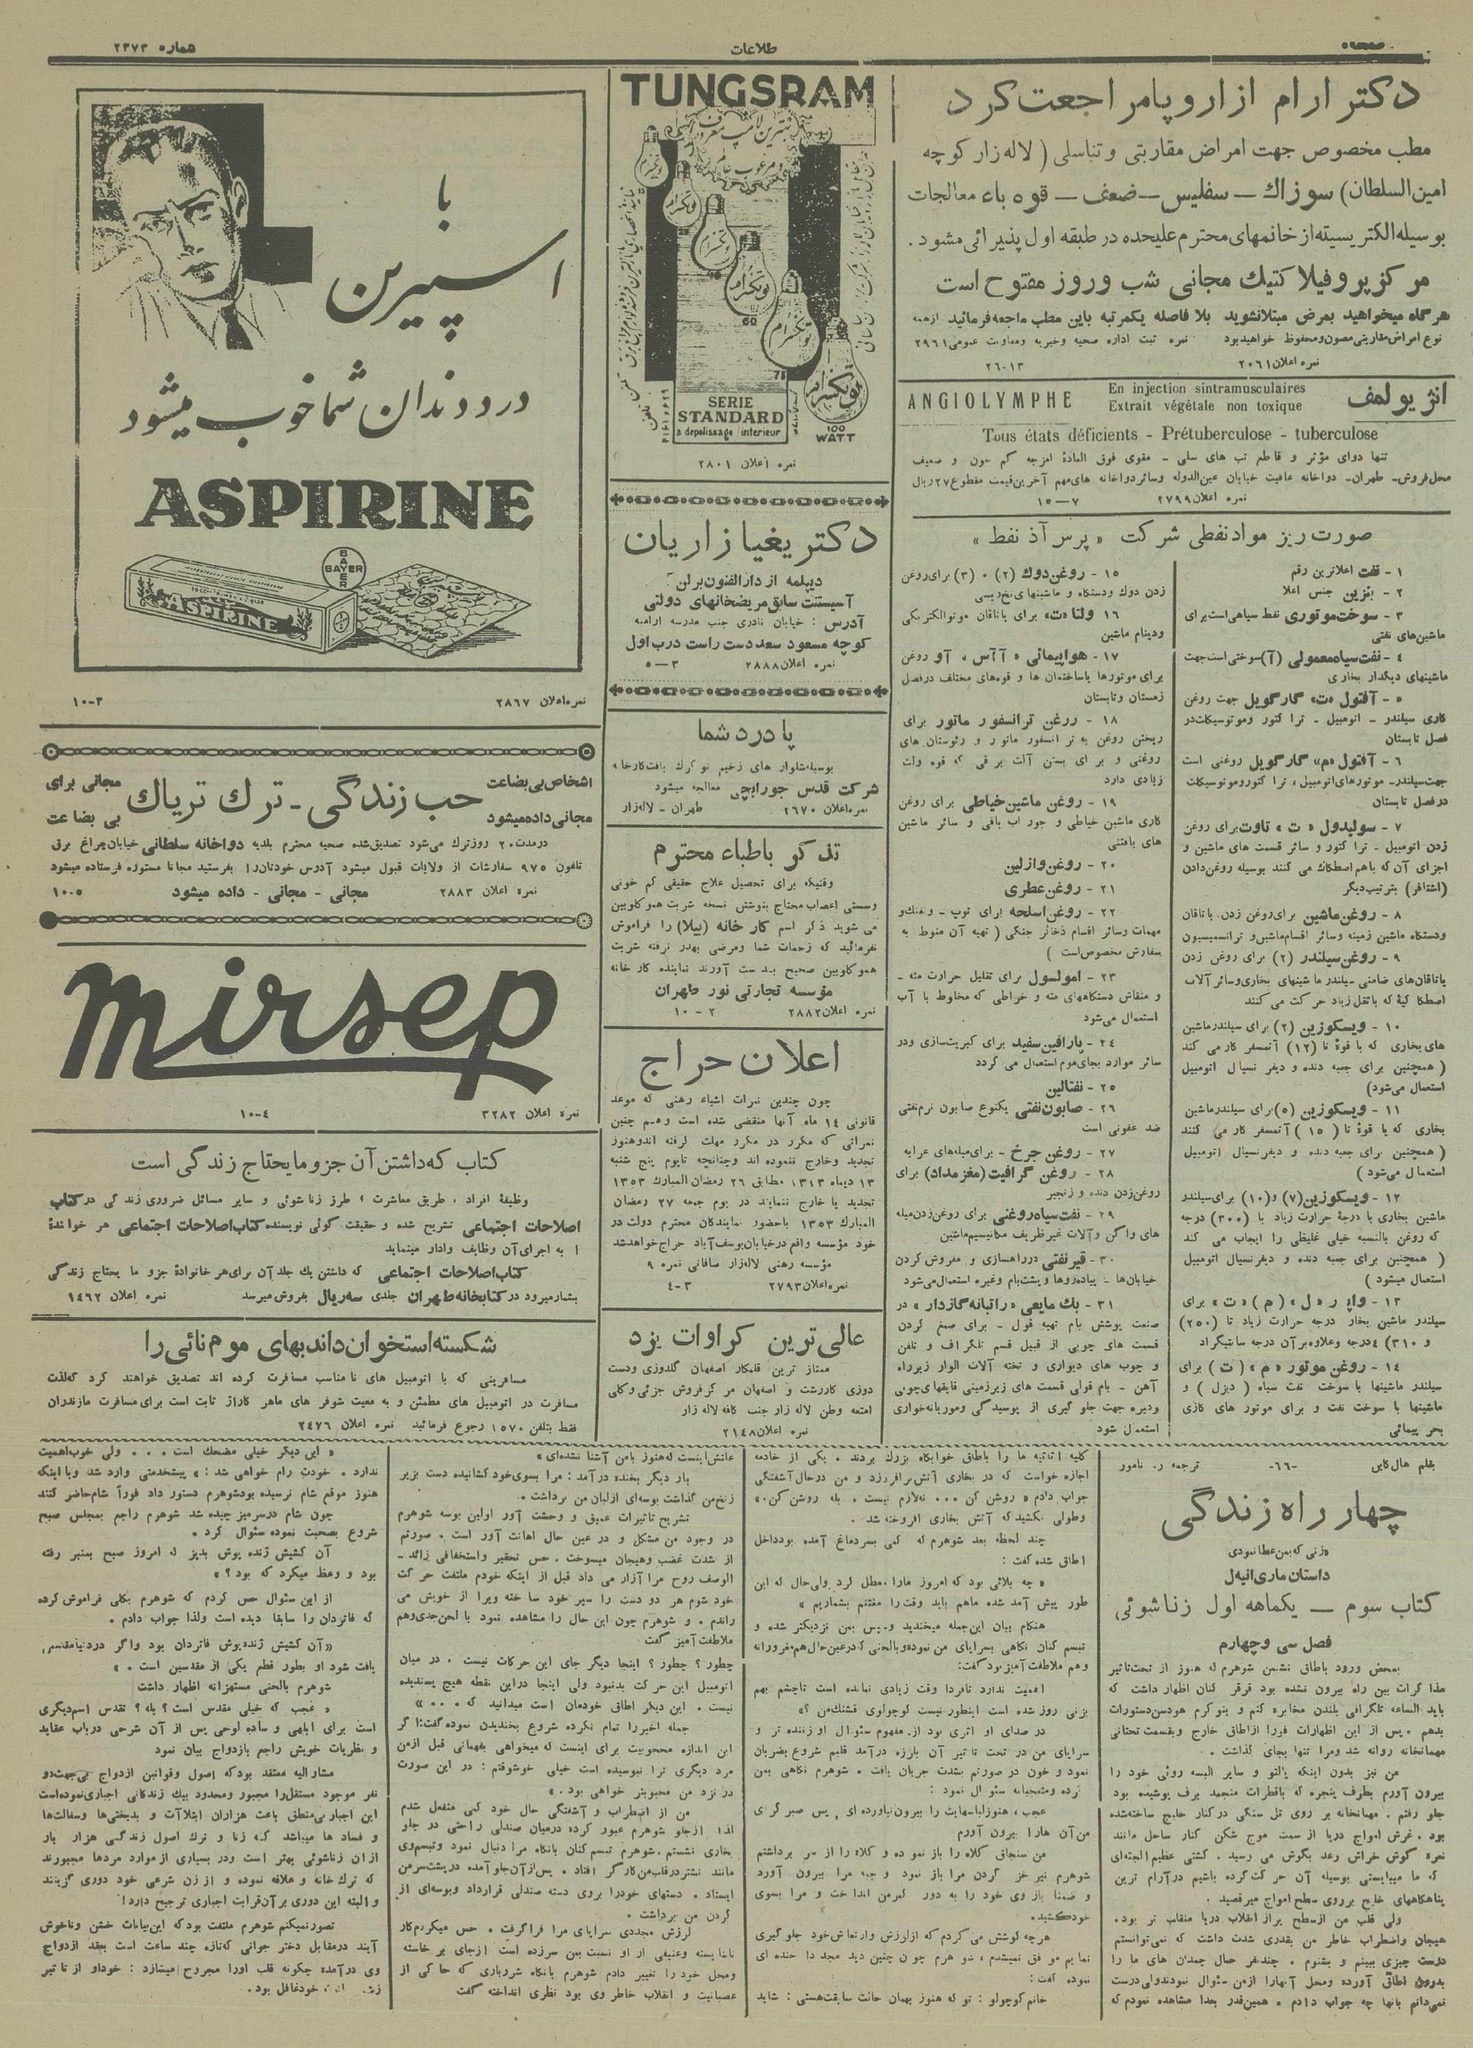 شماره ۲۳۷۳
طلاعات
صفحه
دکتر ارام از اروپا مراجعت کرد
مطب مخصوص جهت امراض مقاربتی و تناسلی ( لاله زار کوچه
امین السلطان) سوزاك – سفلیس – ضعف – قوه باء معالجات
بوسیله الکتریسیته از خانمهای محترم علیحده در طبقه اول پذیرائی مشود .
مرکز پروفیلاکتیك مجانی شب وروز مفتوح است
هرگاه میخواهید بمرض مبتلا نشوید بلا فاصله یکمرتبه باین مطب ماجعه فرمائید ازهمه
نوع امراض مقاربتی مصون و محفوظ خواهید بود نمره ثبت اداره صحیه وخیریه ومعاونت عمومی ۲۹۶۱
نمره اعلان ۲۰۶۱ ۱۳-۲۶
انژیولمف
ANGIOLYMPHE
En injection sintramusculaires
Extrait végétale non toxique
Tous états déficients - Prétuberculose - tuberculose
تنها دوای مؤثر و قاطع تب های سلی - مقوی فوق العادۀ امزجه کم خون و ضعیف
محل فروش - طهران - دواخانه عافیت خیابان عین الدوله وسائر دواخانه های مهم آخرین قیمت مقطوع ۲۷ ریال
نمره اعلان ۲۷۹۹ ۷-۱۵
صورت ریز مواد نفطی شرکت « پرس آذ نفط »
۱ - نفت اعلاترین رقم
۲ - بنزین جنس اعلا
۳ - سوخت موتوری نفط سیاهی است برای
ماشین‌های نفتی
۴ - نفت سیاه معمولی (آ) سوختی است جهت
ماشینهای دیگدار بخاری
۵ - آفتول «ت» گارگویل جهت روغن
کاری سیلندر - اتومبیل - تراکتور وموتوسیکلت در
فصل تابستان
۶ - آفتول «م» گارگویل روغنی است
جهت سیلندر - موتورهای اتومبیل، تراکتور وموتوسیکلت
در فصل تابستان
۷ - سولیدول « ت » تاوت برای روغن
زدن اتومبیل - تراکتور و سائر قسمت های ماشین و
اجزای آن که باهم اصطکاك می کنند بوسیله روغن دادن
(اشتافر) بترتیب دیگر
۸ - روغن ماشین برای روغن زدن یاتاقان
ودستگاه ماشین زمینه وسائر اقسام ماشین و ترانسمیسیون
۹ - روغن سیلندر (۲) برای روغن زدن
یاتاقان‌های ضامنی سیلندر ماشینهای بخاری وسائر آلات
اصطکاکیۀ که باثقل زیاد حرکت می کنند
۱۰ - ویسکوزین (۲) برای سیلندر ماشین
های بخاری که با قوۀ تا (۱۲) آتمسفر کار می کند
( همچنین برای جعبه دنده و دیفرنسیال اتومبیل
استعمال می‌شود)
۱۱ - ویسکوزین (۵) برای سیلندر ماشین
بخاری که با قوۀ تا ( ۱۵ ) آتمسفر کار می کنند
( همچنین برای جعبه دنده و دیفرنسیال اتومبیل
استعمال می‌شود )
۱۲ - ویسکوزین (۷) و (۱۰) برای سیلندر
ماشین بخاری با درجۀ حرارت زیاد با (۳۰۰) درجه
که روغن بالنسبه خیلی غلیظی را ایجاب می کند
( همچنین برای جعبه دنده و دیفرنسیال اتومبیل
استعمال میشود )
۱۳ - واپر « ل » ( م ) « ت » برای
سیلندر ماشین بخار درجه حرارت زیاد تا (۲۵۰)
و (۳۱۰) درجه وعلاوه بر آن درجه سانتیگراد
۱۴ - روغن موتور « م » ( ت ) برای
سیلندر ماشینها با سوخت نفت سیاه ( دیزل ) و
ماشینها با سوخت نفت و برای موتور های گازی
بحر پیمائی
۱۵ - روغن دوك (۲) ، (۳) برای روغن
زدن دوك ودستگاه و ماشینهای نخ‌ریسی
۱۶ - ولتا «ت» برای یاتاقان موتوالکتریکی
ودینام ماشین
۱۷ - هواپیمائی « آآس ، آو روغن
برای موتورها یاساختمان ها و قوه‌های مختلف در فصل
زمستان وتابستان
۱۸ - روغن ترانسفورماتور برای
ریختن روغن به ترانسفورماتور و رئوستان های
روغنی و برای بستن آلت برقی که قوه ولت
زیادی دارد
۱۹ - روغن ماشین خیاطی برای روغن
کاری ماشین خیاطی و جوراب بافی و سائر ماشین
های بافتنی
۲۰ - روغن وازلین
۲۱ - روغن عطری
۲۲ - روغن اسلحه برای توپ - وتفنك و
مهمات وسائر اقسام ذخائر جنگی ( تهیه آن منوط به
سفارش مخصوص است )
۲۳ - امولسول برای تقلیل حرارت مته -
و منقاش دستگاههای مته و خراطی که مخلوط با آب
استعمال می‌شود
۲۴ - پارافین سفید برای کبریت‌سازی ودر
سائر موارد بجای موم استعمال می گردد
۲۵ - نفتالین
۲۶ - صابون نفتی یکنوع صابون نرم نفتی
ضد عفونی است
۲۷ - روغن چرخ - برای میله‌های عرابه
۲۸ - روغن گرافیت (مغز مداد) برای
روغن‌زدن دنده و زنجیر
۲۹ - نفت سیاه روغنی برای روغن‌زدن میله
های واگن و آلات غیر ظریف مکانیسم ماشین
۳۰ - قیر نفتی در راهسازی و مفروش کردن
خیابان‌ها - پیاده‌روها و پشت‌بام وغیره استعمال می‌شود
۳۱ - بك مایعی « راتبانه گازدار » در
صنعت پوشش بام تهیه قول - برای صمغ کردن
قسمت های چوبی از قبیل قسم تلگراف و تلفن
و چوب های دیواری و تخته آلات الوار زیر راه
آهن - بام قولی قسمت های زیرزمینی قایقهای چوبی
وغیره جهت جلو گیری از پوسیدگی وموریانه خواری
استعمال شود
TUNGSRAM
بهترین لامپ معروف
و مرغوب عالم
تونگسرام
تونگسرام
تونگسرام
تونگسرام
تونگسرام
60
75
100
WATT
SERIE
STANDARD
a depolissage interieur
نمره اعلان ۲۸۰۱
دکتر یغیا زاریان
دیپلمه از دارالفنون برلن
آسیستنت سابق مریضخانهای دولتی
آدرس : خیابان نادری جنب مدرسه ارامنه
کوچه مسعود سعد دست راست درب اول
نمره اعلان ۲۸۸۸ ۳-۵
پا درد شما
بوسیله شلوار های زخیم نو کرك بافت کارخانه
شرکت قدس جورابچی معالجه میشود
نمره اعلان ۲۶۷۰ طهران - لاله‌زار
تذکر باطباء محترم
وقتیکه برای تحصیل علاج حقیقی کم خونی
وسستی اعصاب محتاج بنوشتن نسخه شربت هموکلوبین
می شوید ذکر اسم کارخانه (بیلا) را فراموش
نفرمائید که زحمات شما ومرضی بهدر نرفته شربت
هموکلوبین صحیح بدست آورند نماینده کارخانه
مؤسسه تجارتی نور طهران
نمره اعلان ۲۸۸۲ ۲ - ۱۰
اعلان حراج
چون چندین نمرات اشیاء رهنی که موعد
قانونی ۱۴ ماه آنها منقضی شده است وهم چنین
نمراتی که مکرر در مکرر مهلت گرفته اندوهنوز
تجدید وخارج ننموده اند وچنانچه تایوم پنج شنبه
۱۳ دیماه ۱۳۱۳ مطابق ۲۶ رمضان المبارك ۱۳۵۳
تجدید یا خارج ننمایند در یوم جمعه ۲۷ رمضان
المبارك ۱۳۵۳ باحضور نمایندگان محترم دولت در
خود مؤسسه واقع درخیابان یوسف آباد حراج خواهد شد
مؤسسه رهنی لاله‌زار صافانی نمره ۹
نمره اعلان ۲۷۹۳ ۳-۴
عالی ترین کراوات یزد
ممتاز ترین قلمکار اصفهان گلدوزی ودست
دوزی کاررشت و اصفهان مرکز فروش جزئی وکلی
امتعه وطن لاله زار جنب کافه لاله زار
نمره اعلان ۲۱۴۸
با
اسپیرین
درد دندان شما خوب میشود
ASPIRINE
BAYER
ASPIRINE
نمره اعلان ۲۸۶۷ ۳-۱۰
اشخاص بی بضاعت
مجانی داده میشود
حب زندگی - ترك تریاك
مجانی برای
بی بضاعت
درمدت ۲۰ روز ترك می‌شود تصدیق‌شده صحیه محترم بلدیه دواخانه سلطانی خیابان چراغ برق
تلفون ۹۷۵ سفارشات از ولایات قبول میشود آدرس خودتان را بفرستید مجانا مستوره فرستاده میشود
نمره اعلان ۲۸۸۳ مجانی - مجانی - داده میشود ۵-۱۰
mirsep
نمره اعلان ۳۲۸۲ ۴-۱۰
کتاب که داشتن آن جزو مایحتاج زندگی است
وظیفۀ افراد ، طریق معاشرت ، طرز زناشوئی و سایر مسائل ضروری زندگی در کتاب
اصلاحات اجتماعی تشریح شده و حقیقت گوئی نویسنده کتاب اصلاحات اجتماعی هر خوانندۀ
را به اجرای آن وظایف وادار مینماید
کتاب اصلاحات اجتماعی که داشتن یك جلد آن برای هر خانوادۀ جزو ما یحتاج زندگی
بشمار میرود در کتابخانه طهران جلدی سه ریال بفروش میرسد نمره اعلان ۱۴۶۲
شکسته استخوان داند بهای موم نائی را
مسافرینی که با اتومبیل های نامناسب مسافرت کرده اند تصدیق خواهند کرد که لذت
مسافرت در اتومبیل های مطمئن و به معیت شوفر های ماهر کاراژ ثابت است برای مسافرت مازندران
فقط بتلفن ۱۵۷۰ رجوع فرمائید نمره اعلان ۲۴۷۶
بقلم هال کاین -۶۶- ترجمه ر. نامور
چهار راه زندگی
«زنی که بمن عطا نمودی»
داستان ماری انیه‌ل
کتاب سوم – یکماهه اول زناشوئی
فصل سی وچهارم
بمحض ورود باطاق نشمن شوهرم که هنوز از تحت تاثیر
مذاکرات بین راه بیرون نشده بود قرقر کنان اظهار داشت که
باید الساعه تلگرافی بلندن مخابره کنم و بنوکرم هودسن دستورات
بدهم . پس از این اظهارات فورا از اطاق خارج وبقسمت تحتانی
مهمانخانه روانه شد ومرا تنها بجای گذاشت .
من نیز بدون اینکه پالتو و سایر البسه روئی خود را
بیرون آورم بطرف پنجره که باقطرات منجمد برف پوشیده بود
جلو رفتم . مهمانخانه بر روی تل سنگی در کنار خلیج ساخته شده
بود . غرش امواج دریا از سمت موج شکن کنار ساحل مانند
نعره گوش خراش رعد بگوش می رسید . کشتی عظیم الجثه‌ای
که ما میبایستی بوسیله آن حرکت کرده باشیم درآرام ترین
پناهگاههای خلیج برروی سطح امواج میرقصید .
ولی قلب من از سطح پراز انقلاب دریا منقلب تر بود .
هیجان واضطراب خاطر من بقدری شدت داشت که نمی‌توانستم
درست چیزی ببینم و بشنوم . چندنفر حمال چمدان های ما را
بدرون اطاق آورده ومحل آنهارا ازمن سئوال نمودند ولی درست
نمی‌دانم بآنها چه جواب دادم . همین‌قدر بعدا مشاهده نمودم که
کلیه اثاثیه ما را باطاق خوابگاه بزرك بردند . یکی از خادمه
اجازه خواست که در بخاری آتش برافروزد و من درحال آشفتگی
جواب دادم « روشن کن ... نه لازم نیست . بله روشن کن . »
وطولی نکشید که آتش بخاری افروخته شد .
چند لحظه بعد شوهرم که کمی بسردماغ آمده بود داخل
اطاق شده گفت :
« چه بلائی بود که امروز مارا معطل کرد ولی حال که این
طور پیش آمد شده ماهم باید وقت را مغتنم بشماریم »
هنگام بیان این جمله میخندید وسپس بمن نزدیکتر شده و
تبسم کنان نگاهی بسراپای من نموده وبالحنی که درعین حال هم مغرورانه
وهم ملاطفت آمیز بود گفت :
اهمیت ندارد تافردا وقت زیادی نمانده است تاچشم بهم
بزنی روز شده است اینطور نیست کوچولوی قشنك من ؟»
در صدای او اثری بود از مفهوم سئوال او زننده تر و
سراپای من در تحت تاثیر آن بلرزه درآمد قلبم شروع بضربان
نمود و خون در صورتم بشدت جریان یافت . شوهرم نگاهی بمن
کرده ومتعجبانه سئوال نمود :
عجب ، هنوز لباسهایت را بیرون نیاورده ای , پس صبر کن ای
من آن هارا بیرون آورم
من سنجاق کلاه را باز نموده و کلاه را از سر برداشتم
شوهرم نیز خز گردن مرا باز نمود و جبه مرا بیرون آورد
و ضمنا بازوی خود را به دور کمرمن انداخت و مرا بسوی
خود کشید .
هرچه کوشش می کردم که از لرزش وارتعاش خود جلو گیری
نمایم موفق نمیشدم ، شوهرم چون چنین دید مجددا خنده ای
نموده گفت :
خانم کوچولو : تو که هنوز بهمان حالت سابقت هستی : شاید
عاتش اینست که هنوز بامن آشنا نشده‌ای »
بار دیگر بخنده درآمد : مرا بسوی خود کشانیده دست بزیر
زنخ من گذاشت بوسه‌ای از لبان من برداشت .
تشریح تاثیرات عمیق و وحشت آور اولین بوسه شوهرم
در وجود من مشکل و در عین حال اهانت آور است . صورتم
از شدت غضب وهیجان میسوخت . حس تحقیر واستخفافی زائد -
الوصف روح مرا آزار می داد قبل از اینکه خودم ملتفت حرکت
خود شوم هر دو دست را سپر خود ساخته ویرا از خویش می
راندم . و شوهرم چون این حال را مشاهده نمود با لحن جدی وهم
ملاطفت آمیز گفت
چطور ؟ چطور ؟ اینجا دیگر جای این حرکات نیست . در میان
اتومبیل این حرکت بدنبود ولی اینجا دراین نقطه هیچ پسندیده
نیست . این دیگر اطاق خودمان است میدانید که ... »
جمله اخیررا تمام نکرده شروع بخندیدن نموده گفت : اگر
این اندازه محجوبیت برای اینست که میخواهی بفهمانی قبل ازمن
مرد دیگری ترا نبوسیده است خیلی خوشوقتم : در این صورت
در نزد من محبوبتر خواهی بود . »
من از اضطراب و آشفتگی حال خود کمی منفعل شدم
لذا ازجلو شوهرم عبور کرده درمیان صندلی راحتی در جلو
بخاری نشستم . شوهرم تبسم کنان بانگاه مرا دنبال نمود وتبسم وی
مانند نشتر درقلب من کارگر افتاد . پس ازآن جلو آمده درپشت سرمن
ایستاد . دستهای خودرا بروی دسته صندلی قرارداد وبوسه‌ای از
گردن من برداشت .
لرزش مجددی سراپای مرا فراگرفت . حس میکردم کار
ناشایسته وعنیفی از او نسبت بمن سرزده است ازجای بر خاسته
ومحل خود را تغییر دادم شوهرم بانگاه شرر باری که حاکی از
عصبانیت و انقلاب خاطر وی بود نظری انداخته گفت
« این دیگر خیلی مضحك است . . . ولی خوب اهمیت
ندارد . خودت رام خواهی شد : » پیشخدمتی وارد شد وبا اینکه
هنوز موقع شام نرسیده بود شوهرم دستور داد فوراً شام حاضر کنند
چون شام درسرمیز چیده شد شوهرم راجع بمجلس صبح
شروع بصحبت نموده سئوال کرد .
آن کشیش ژنده پوش بدیز که امروز صبح بمنبر رفته
بود و وعظ میکرد که بود ؟ »
از این سئوال حس کردم که شوهرم بکلی فراموش کرده
که فاتردان را سابقا دیده است ولذا جواب دادم .
« آن کشیش ژنده پوش فاتردان بود واگر دردنیا مقدسی
یافت شود او بطور قطع یکی از مقدسین است . »
شوهرم بالحنی مستهزانه اظهار داشت
« عجب که خیلی مقدس است ؟ بله ؟ تقدس اسم دیگری
است برای ابلهی و ساده لوحی پس از آن شرحی درباب عقاید
و نظریات خویش راجع بازدواج بیان نمود
مشارالیه معتقد بود که اصول وقوانین ازدواج بی‌جهت دو
نفر موجود مستقل را مجبور ومحدود بیك زندگانی اجباری نموده است
این اجبار بی‌منطق باعث هزاران ابتلاآت و بدبختی‌ها وسفالت‌ها
و فساد ها میباشد که زنا و ترك اصول زندگی هزار بار
از آن زناشوئی بهتر است ودر بسیاری از موارد مردها مجبورند
که ترك خانه و علاقه نموده و از زن شرعی خود دوری گزینند
و البته این دوری بر آن قرابت اجباری ترجیح دارد !
تصور نمیکنم شوهرم ملتفت بود که این بیانات خشن وناخوش
آیند درمقابل دختر جوانی که تازه چند ساعت است بعقد ازدواج
وی درآمده چگونه قلب اورا مجروح میسازد : خود او از تاثیر
خود غافل بود .